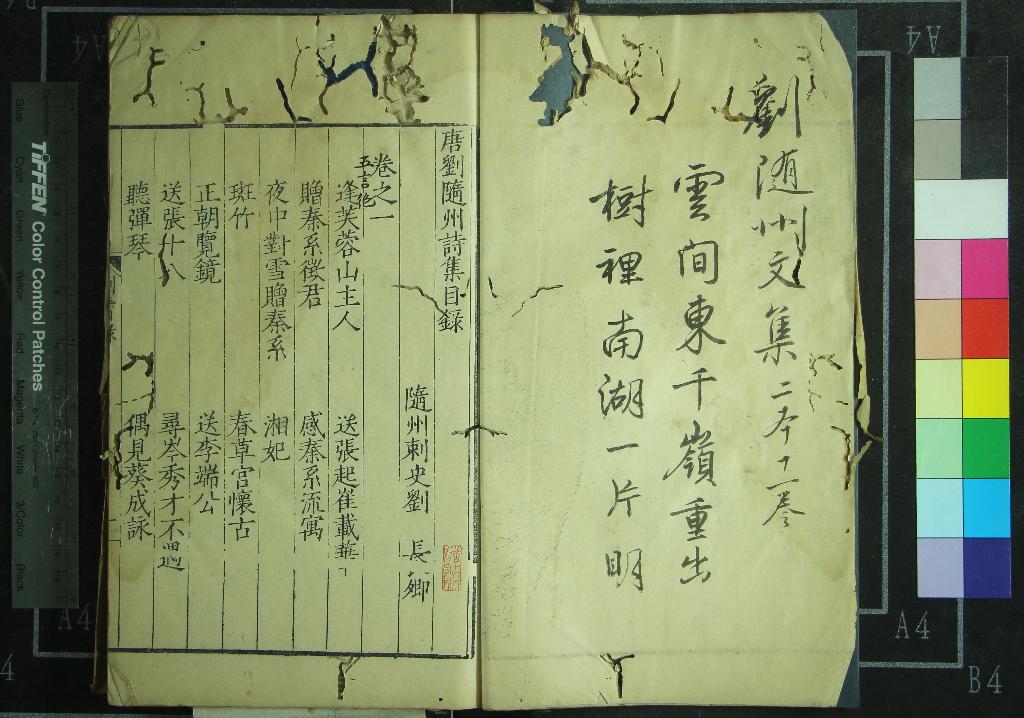 劉随州文集二本十一卷
雲間東千嶺重出
樹裡南湖一片明
唐劉隨州詩集目録
隨州刺史劉 長卿
卷之一
五言絶
逢芙蓉山主人 送張起崔載華
贈秦系徵君 感秦系流寓
夜中對雪贈秦系 湘妃
斑竹 春草宮懷古
正朝覽鏡 送李端公
送張十八 尋岑秀才不遇
聽彈琴 偶見葵成詠
TIFFEN Color Control Patches
Blue Cyan Green Yellow Red Magenta White 3/Color Black
A4
A4
A4
A4
B4